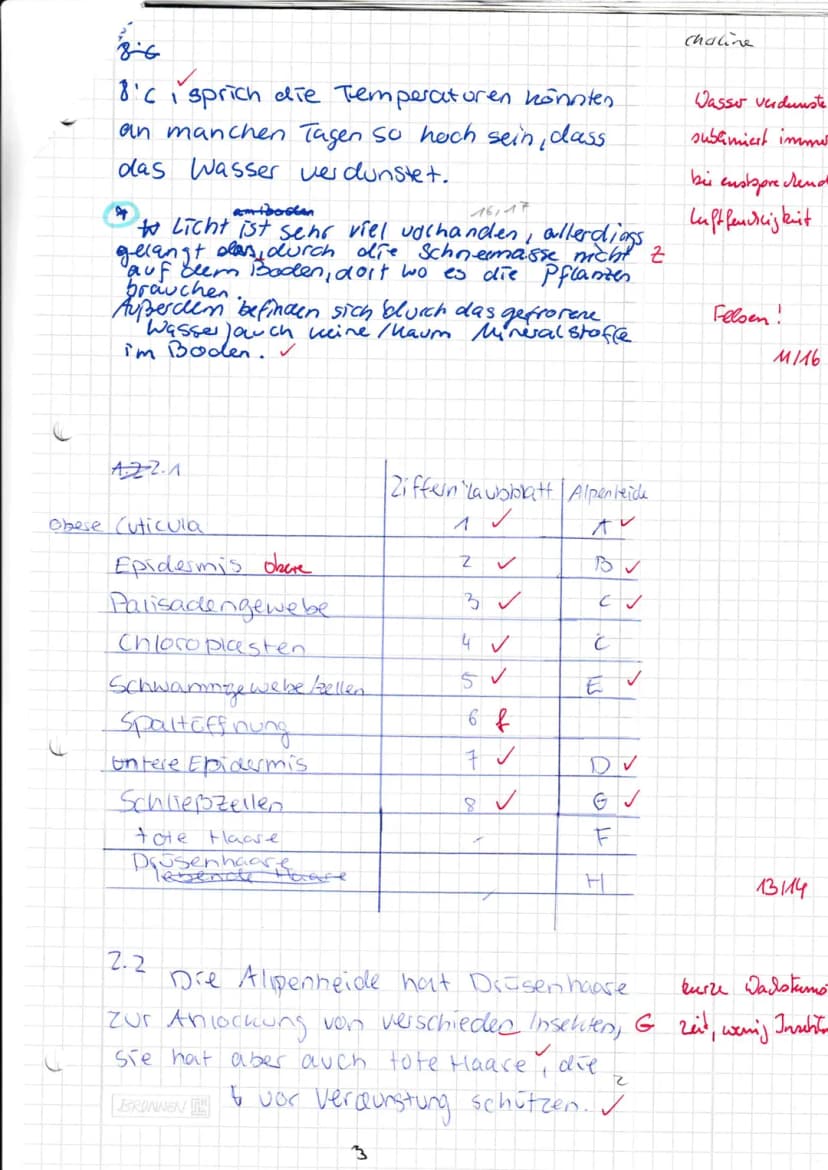 8°C
8°C, sprich die Temperaturen könnten
an manchen Tagen so hoch sein, dass
das Wasser verdunstet.
Wasser verdunste
sublimiert imme
bei entsprechend
Luftfeuchigkeit
am Boden 16,17
Licht ist sehr viel vorhanden, allerdings
gelangt das, durch die Schneemasse nicht Z
auf dem Boden, dort wo es die Pflanzen
brauchen.
Außerdem befinden sich (durch das gefrorene
Wasser) auch keine/kaum Mineralstoffe
im Boden. ✓
Felsen!
11/16
A.2 2.1
Ziffern Laubblatt Alpenheide
Obere Cuticula 1 ✓ A ✓
Epidermis obere 2 ✓ B ✓
Palisadengewebe 3 ✓ C ✓
Chloroplasten 4 ✓ C
Schwammgewebe/zellen 5 ✓ E ✓
Spaltöffnung 6 f
untere Epidermis 7 ✓ D ✓
Schließzellen 8 ✓ G ✓
tote Haare - F
Drüsenhaare
lebende Haare - H
13/14
2.2 Die Alpenheide hat Drüsenhaare kurze Wachstums
zur Anlockung von verschieden Insekten, G zeit, wenig Insekt
sie hat aber auch tote Haare ✓, die
vor Verdunstung schützen. ✓
BRUNNEN
3